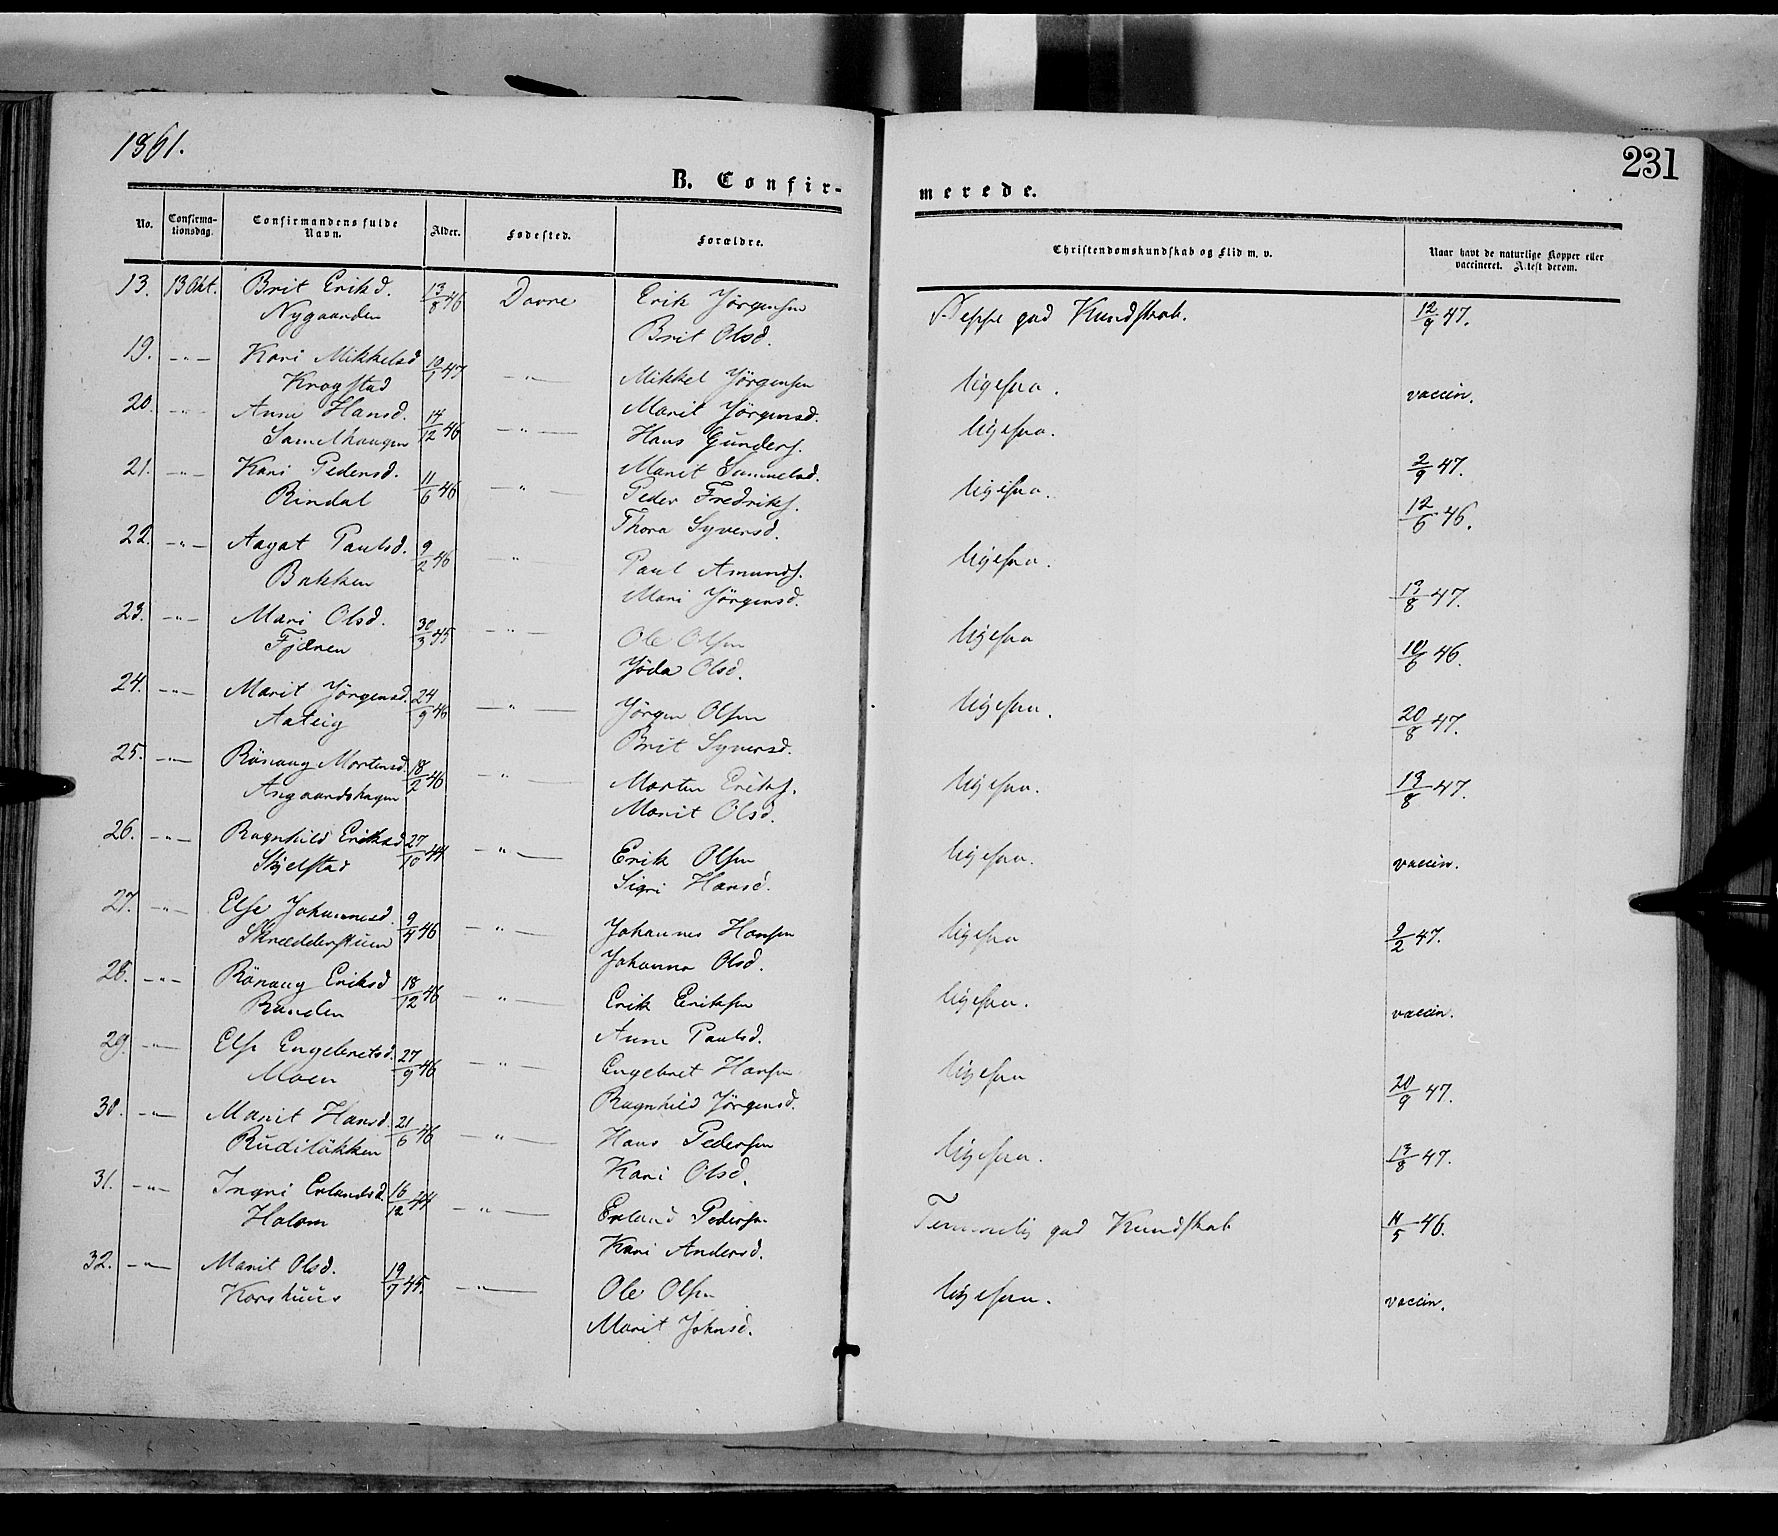 1861.
231
B. Confir-
merede.
No.
Confirma-
tionsdag.
Confirmandens fulde
Navn.
Alder.
Fødested.
Forældre.
Christendomskundskab og Flid m. v.
Naar havt de naturlige Kopper eller
vaccineret. Attest derom.
13. 13 Okt. Brit Eriksd. 13/8 46 Dovre Erik Jörgensen god Kundskab. 12/9 47.
Nygaarden Brit Olsd.
19. -"- Kari Mikkelsd 10/1 47 -"- Mikkel Jörgensen ligesaa. vaccin.
Krogstad Marit Jörgensd.
20. -"- Anne Hansd. 14/12 46 -"- Hans Gunders. ligesaa. 2/9 47.
Marit Sammelsd.
21. -"- Kari Pedersd. 11/6 46 -"- Peder Fredriks. ligesaa. 12/6 46.
Rindal Thora Syversd.
22. -"- Aagot Paulsd. 9/2 46 " Paul Amunds. ligesaa. 13/8 47.
Bakken Mari Jörgensd.
23. -"- Mari Olsd. 30/3 45 -"- Ole Olsen ligesaa 10/6 46.
Olsd.
24. -"- Marit Jörgensd. 24/9 46 -"- Jörgen Olsen ligesaa. 20/8 47.
Brit Syversd.
25. -"- Rönaug Mortensd. 18/2 46 -"- Morten Eriks. ligesaa. 13/8 47.
Marit Olsd.
26. -"- Ragnhild Eriksd 27/10 44 -"- Erik Olsen ligesaa. vaccin.
Skjelstad Sigri Hansd.
27. -"- Else Johannesd. 9/4 46 -"- Johannes Hansen ligesaa 9/2 47.
Skrædderstuen Johanna Olsd.
28. -"- Rönaug Eriksd 18/12 46 -"- Erik Eriksen ligesaa. vaccin.
Randen Anne Paulsd.
29. -"- Else Engebretsd. 27/9 46 -"- Engebret Hansen ligesaa 20/9 47.
Moen Ragnhild Jörgensd.
30. -"- Marit Hansd. 21/6 46 -"- Hans Pedersen ligesaa. 13/8 47.
Rudilökken Kari Olsd.
31. -"- Ingri Erlandsd. 16/12 44 -"- Erland Pedersen Temmelig god Kundskab 11/5 46.
Holom Kari Andersd.
32. -"- Marit Olsd. 19/7 45. -"- Ole Olsen ligesaa. vaccin.
Korshuus Marit Johnsd.